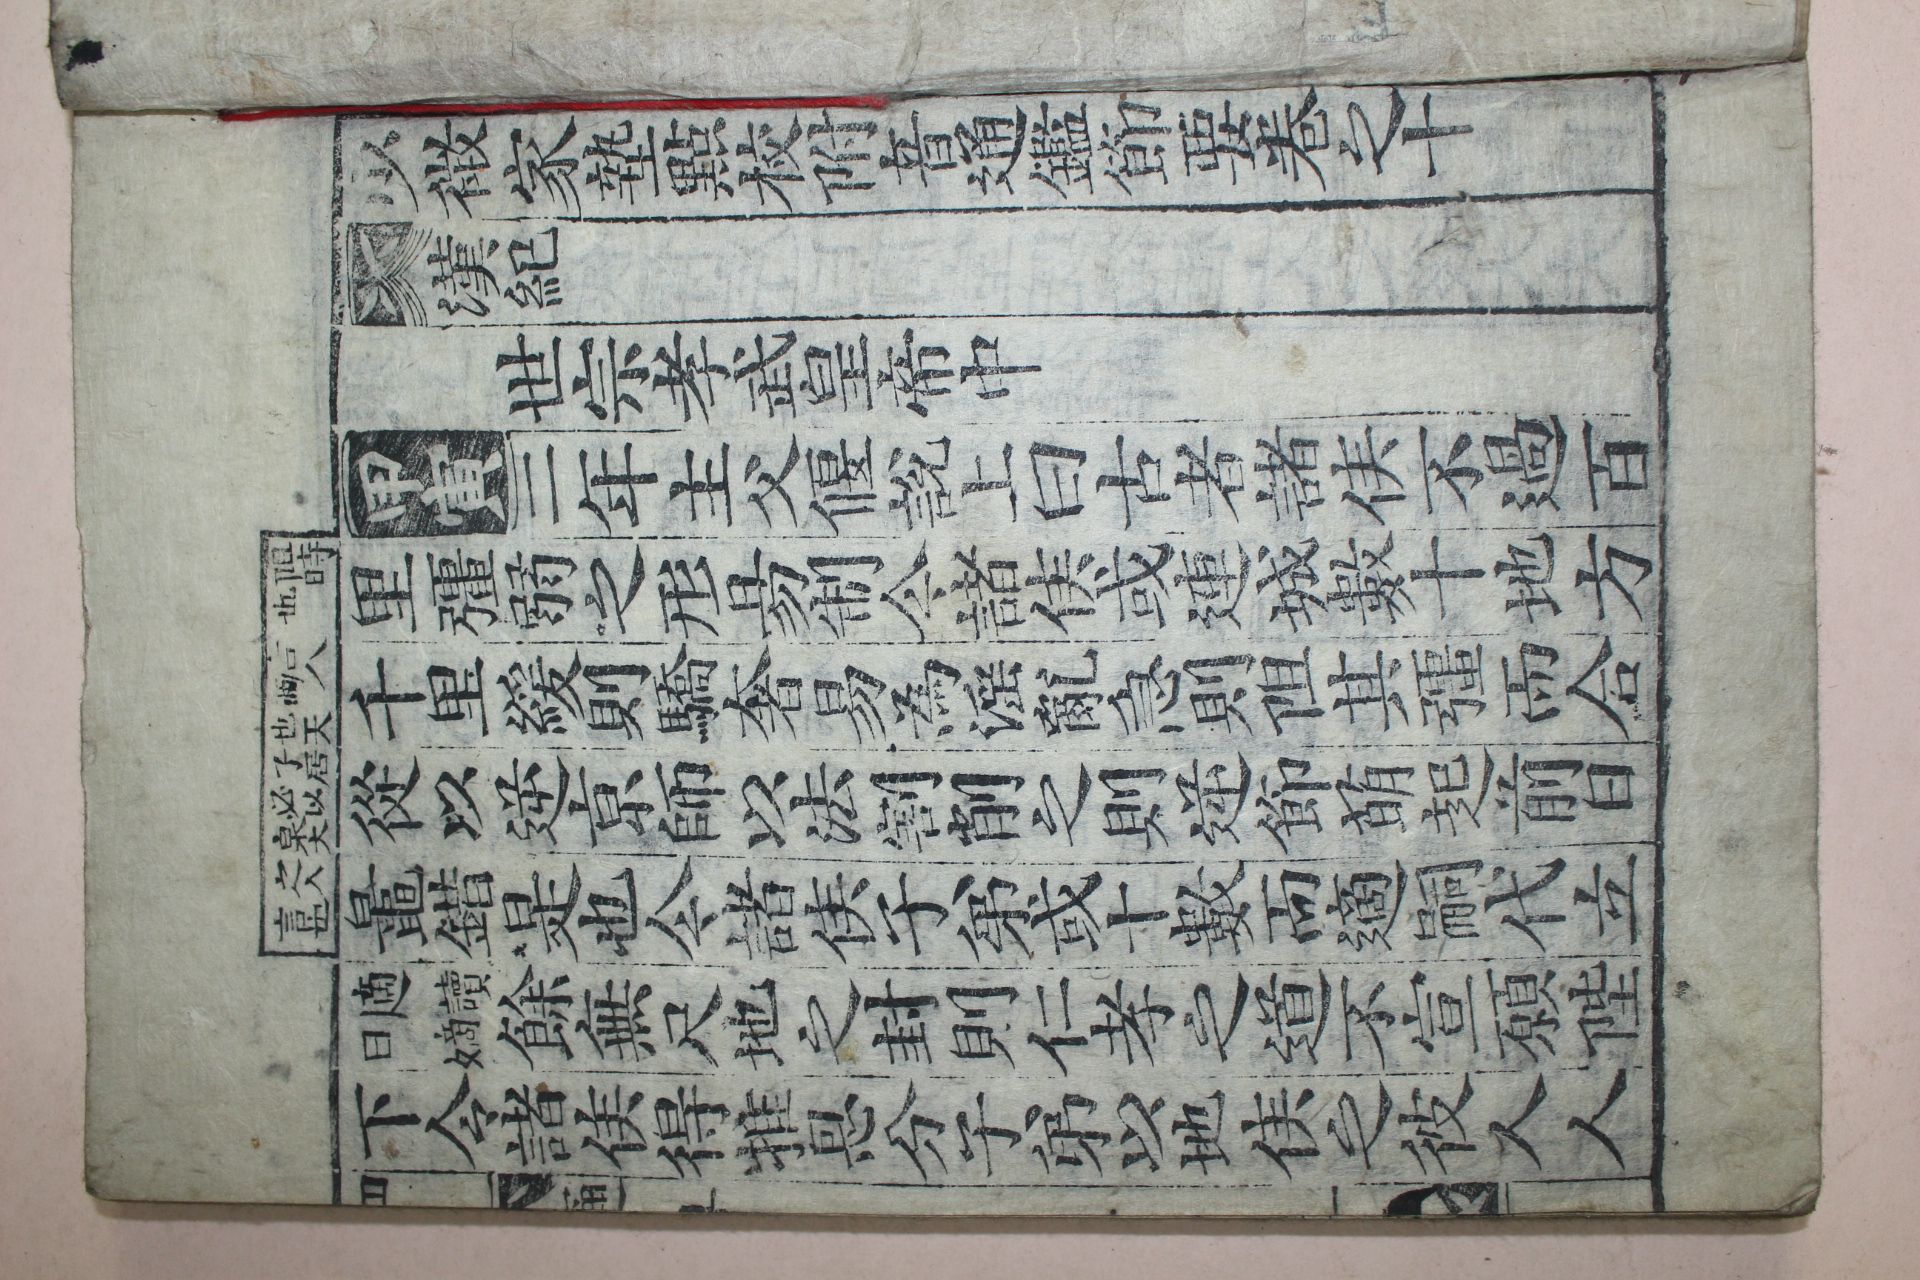 少微家塾點校附音通鑑節要卷之十
漢紀
世宗孝武皇帝中
甲寅三年主父偃說上曰古者諸侯不過百
里彊弱之形易制今諸侯或連城數十地方
千里緩則驕奢易為淫亂急則阻其彊而合
從以逆京師以法割削之則逆節萌起前日
鼂錯是也今諸侯子弟或十數而適嗣代立
適讀曰嫡餘無尺地之封則仁孝之道不宣願陛
下令諸侯得推恩分子弟以地侯之彼人人